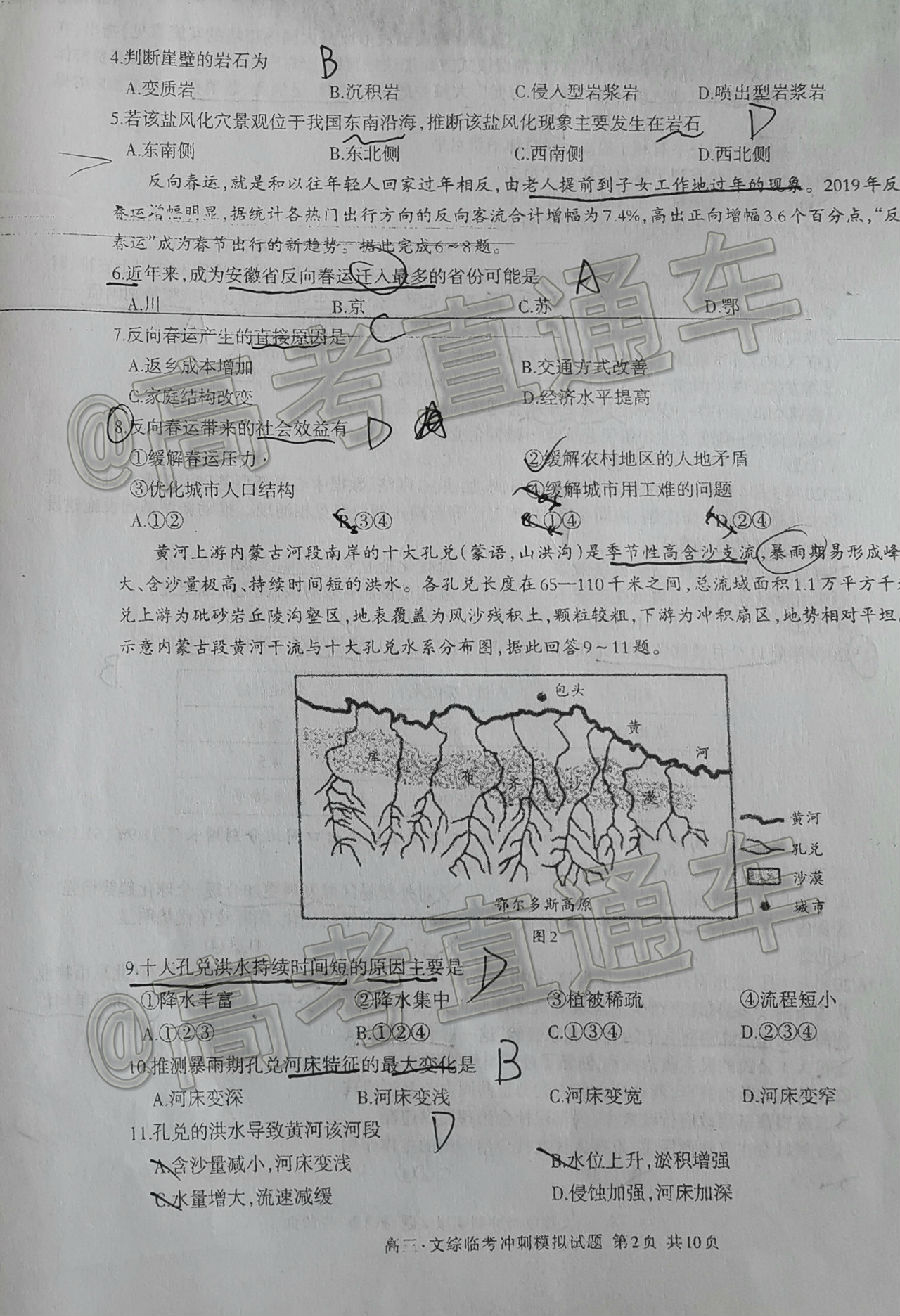 4.判断崖壁的岩石为 B
A.变质岩 B.沉积岩 C.侵入型岩浆岩 D.喷出型岩浆岩
5.若该盐风化穴景观位于我国东南沿海,推断该盐风化现象主要发生在岩石 D
A.东南侧 B.东北侧 C.西南侧 D.西北侧
反向春运,就是和以往年轻人回家过年相反,由老人提前到子女工作地过年的现象。2019年反
春运增幅明显,据统计各热门出行方向的反向客流合计增幅为7.4%,高出正向增幅3.6个百分点,“反
春运”成为春节出行的新趋势。据此完成6~8题。
6.近年来,成为安徽省反向春运迁入最多的省份可能是 A
A.川 B.京 C.苏 D.鄂
7.反向春运产生的直接原因是 C
A.返乡成本增加 B.交通方式改善
C.家庭结构改变 D.经济水平提高
8.反向春运带来的社会效益有 D
①缓解春运压力 ②缓解农村地区的人地矛盾
③优化城市人口结构 ④缓解城市用工难的问题
A.①② B.③④ C.①④ D.②④
黄河上游内蒙古河段南岸的十大孔兑(蒙语,山洪沟)是季节性高含沙支流,暴雨期易形成峰
大、含沙量极高、持续时间短的洪水。各孔兑长度在65—110千米之间,总流域面积1.1万平方千
兑上游为砒砂岩丘陵沟壑区,地表覆盖为风沙残积土,颗粒较粗,下游为冲积扇区,地势相对平坦
示意内蒙古段黄河干流与十大孔兑水系分布图,据此回答9~11题。
包头
黄
河
库 布 齐 沙 漠
鄂尔多斯高原
黄河
孔兑
沙漠
城市
图2
9.十大孔兑洪水持续时间短的原因主要是 D
①降水丰富 ②降水集中 ③植被稀疏 ④流程短小
A.①②③ B.①②④ C.①③④ D.②③④
10.推测暴雨期孔兑河床特征的最大变化是 B
A.河床变深 B.河床变浅 C.河床变宽 D.河床变窄
11.孔兑的洪水导致黄河该河段 D
A.含沙量减小,河床变浅 B.水位上升,淤积增强
C.水量增大,流速减缓 D.侵蚀加强,河床加深
高三·文综临考冲刺模拟试题 第2页 共10页
@高考直通车
@高考直通车